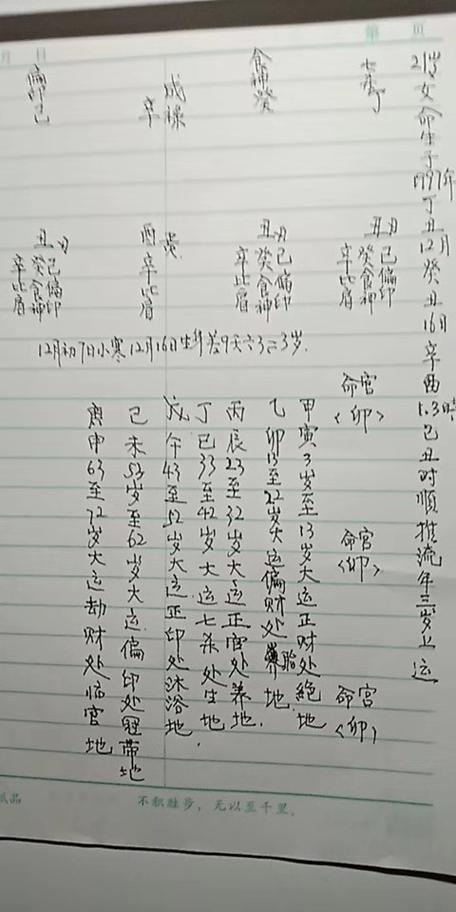 第 页
月 日
21岁女命生于1997年丁丑12月癸丑16日辛酉1.3時己丑时顺推流年三岁上运
七杀丁
食神癸
戌禄
辛
偏印己
丑月
己偏印
癸食神
辛比肩
丑月
己偏印
癸食神
辛比肩
酉
辛比肩
丑月
己偏印
癸食神
辛比肩
12月初7日小寒12月16日生
命宫
<卯>
命宫
<卯>
命宫
<卯>
甲寅3岁至13岁大运正财处绝地
乙卯13至22岁大运偏财处胎地.
丙辰23至32岁大运正官处养地.
丁巳33至42岁大运七杀处生地
戊午43至52岁大运正印处沐浴地
己未53岁至62岁大运偏印处冠带地
庚申63至72岁大运劫财处临官地
纸品
不积跬步，无以至千里。